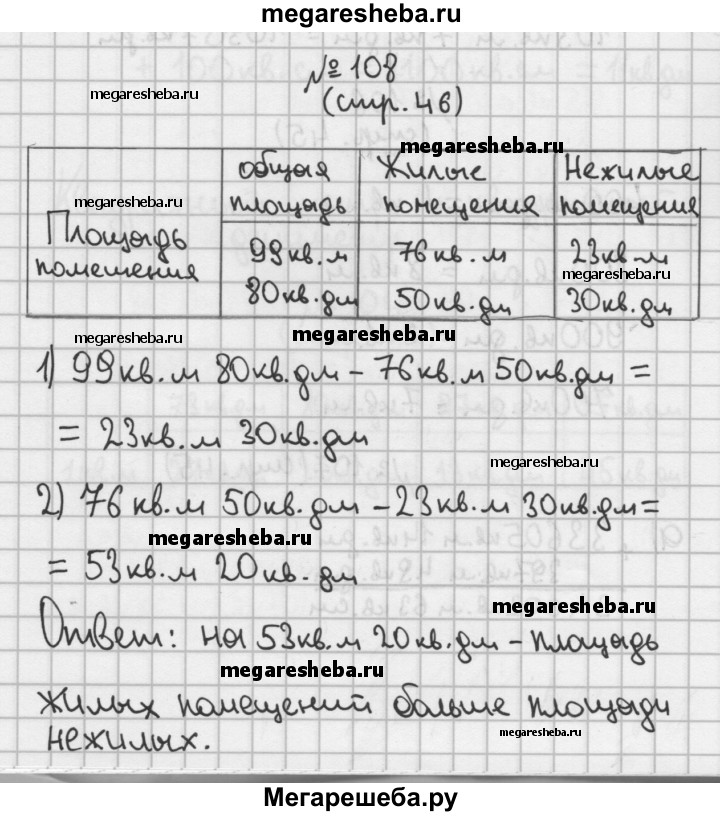 megaresheba.ru
№ 108
megaresheba.ru
(стр. 46)
megaresheba.ru
общая Жилые Нежилые
megaresheba.ru площадь помещения помещения
Площадь 99кв.м 76кв.м 23кв.м
помещения megaresheba.ru
80кв.дм 50кв.дм 30кв.дм
megaresheba.ru megaresheba.ru
1) 99кв.м 80кв.дм - 76кв.м 50кв.дм =
= 23кв.м 30кв.дм
megaresheba.ru
2) 76кв.м 50кв.дм - 23кв.м 30кв.дм =
megaresheba.ru
= 53кв.м 20кв.дм
megaresheba.ru
Ответ: на 53кв.м 20кв.дм - площадь
megaresheba.ru
жилых помещений больше площади
нежилых.
megaresheba.ru
Мегарешеба.ру